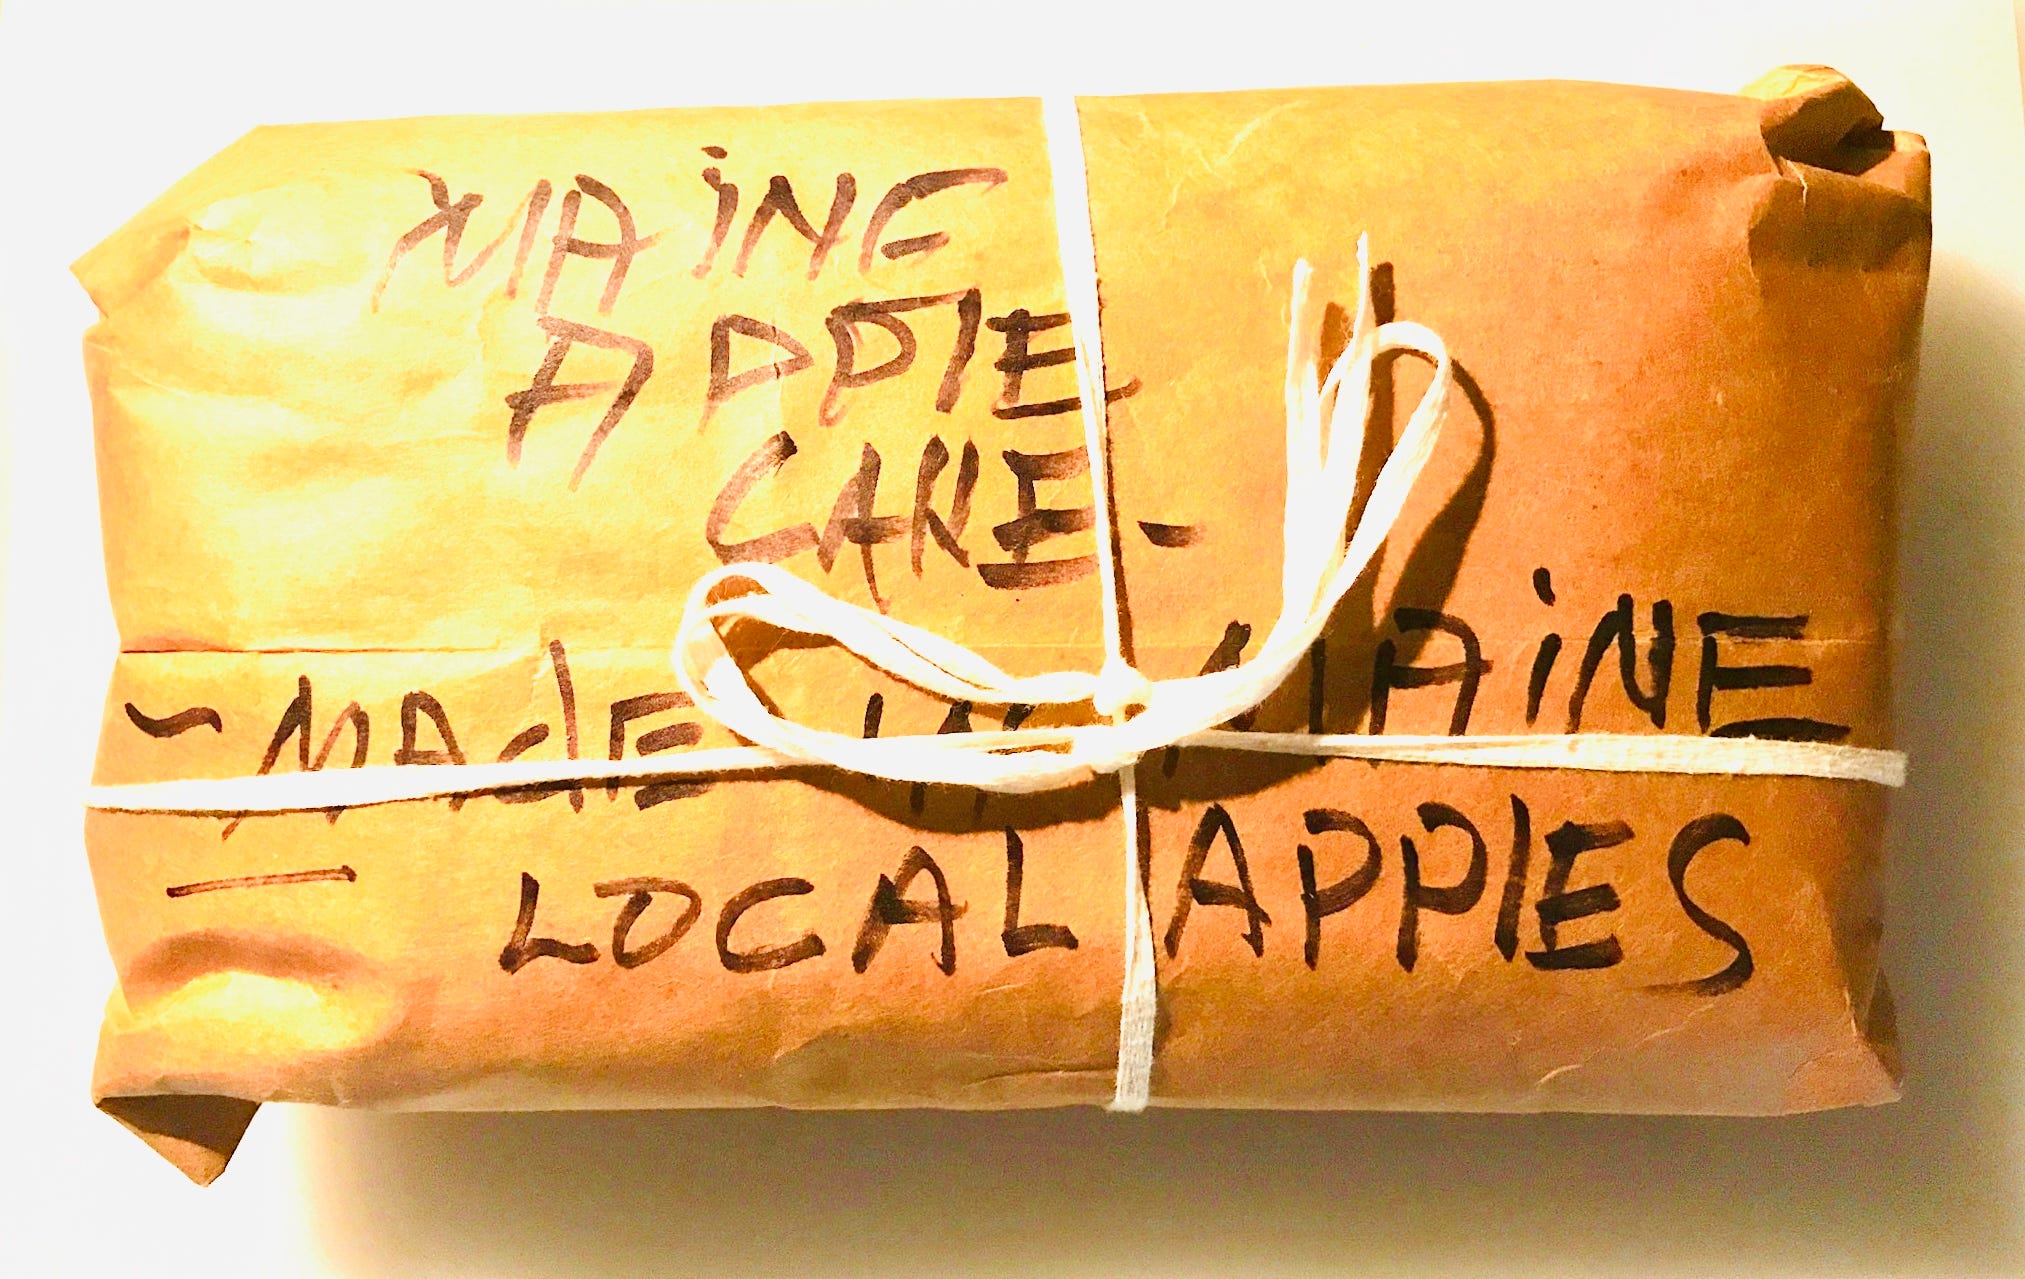 MAiNE
APPlE
CAKE-
~ MAdE IN MAiNE
— LOCAL APPlES